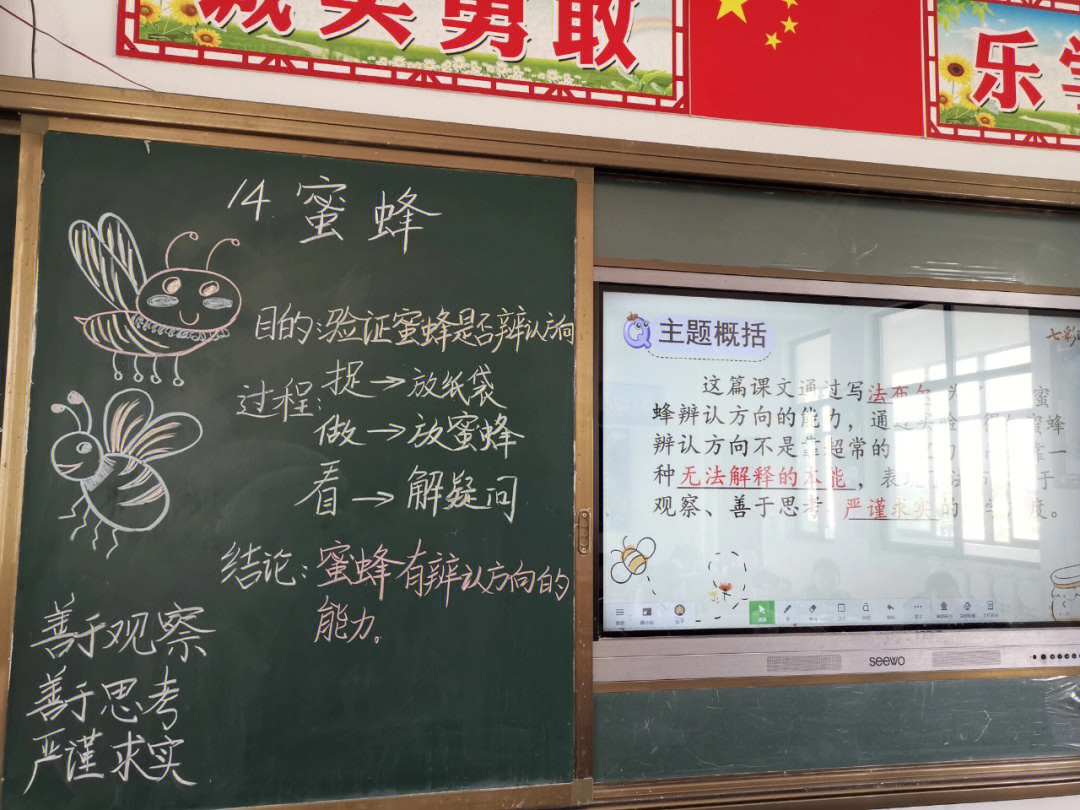 诚实勇敢
乐学
14 蜜蜂
目的:验证蜜蜂是否辨认方向
过程:捉→放纸袋
做→放蜜蜂
看→解疑问
结论:蜜蜂有辨认方向的
能力。
善于观察
善于思考
严谨求实
主题概括
七彩
这篇课文通过写法布尔 蜜
蜂辨认方向的能力,通过实验 得 蜜蜂
辨认方向不是靠超常的 一
种无法解释的本能,表 法 于
观察、善于思考 严谨求实的 度。
seewo